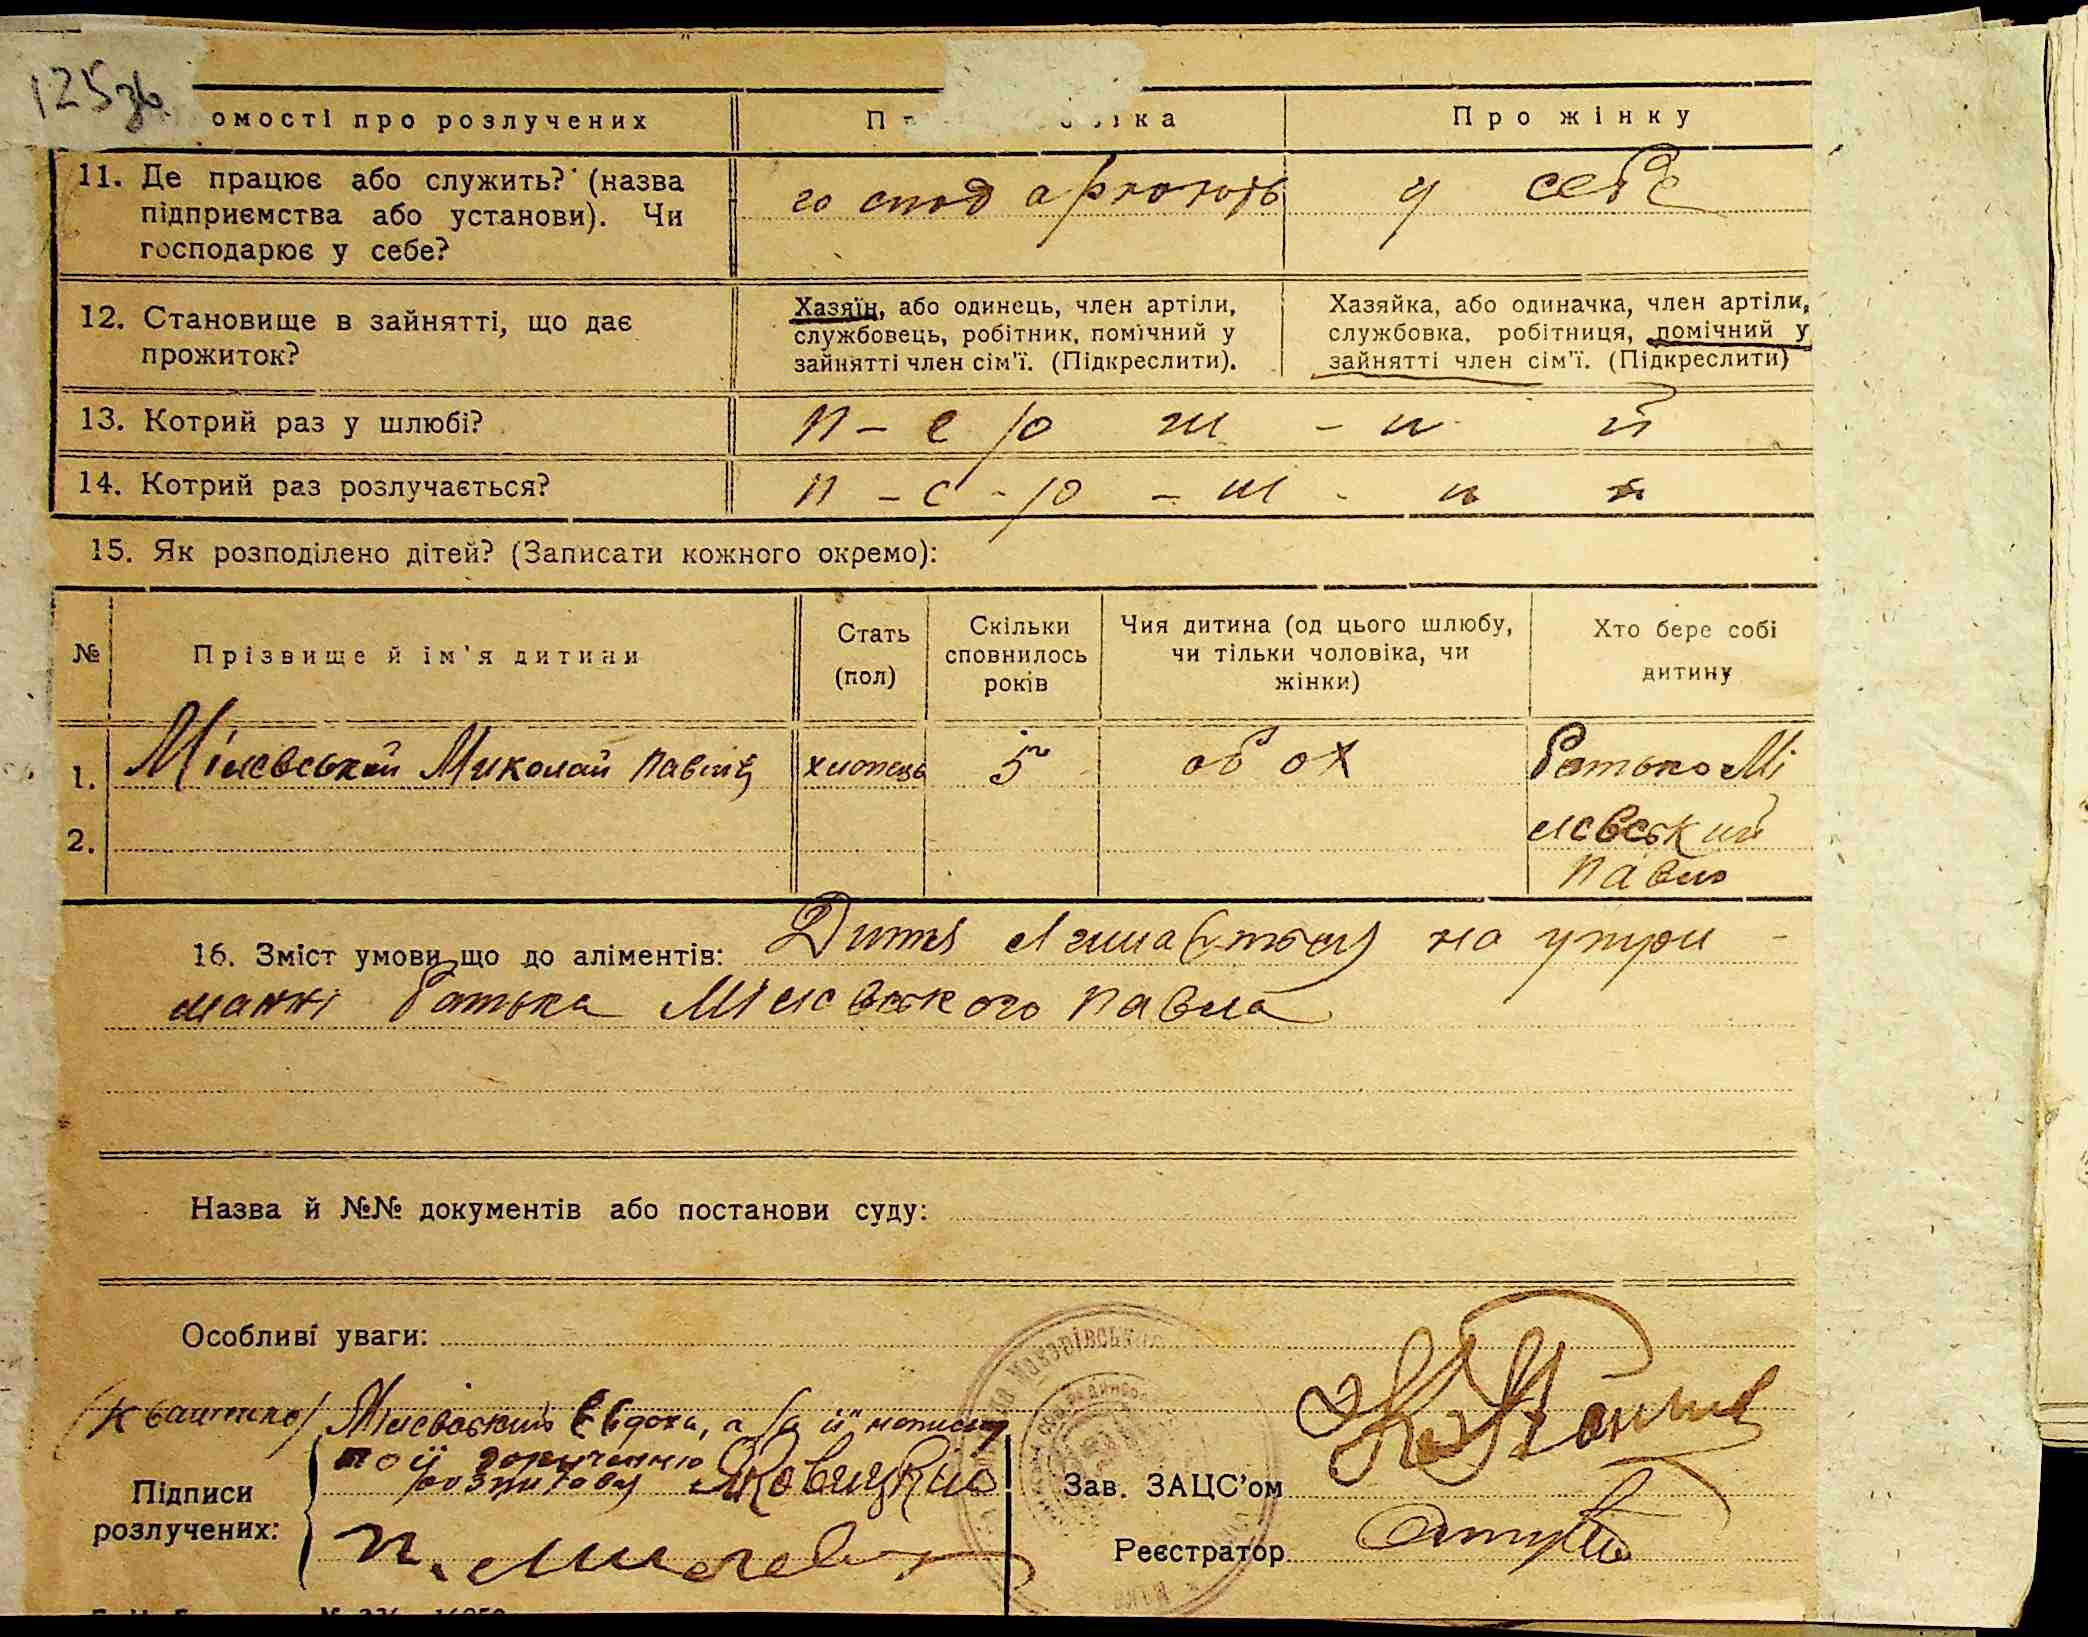 125зв
омості про розлучених
Про жінку
11. Де працює або служить? (назва
підприємства або установи). Чи
господарює у себе?
господарюють у себе
12. Становище в зайнятті, що дає
прожиток?
Хазяїн, або одинець, член артіли,
службовець, робітник, помічний у
зайнятті член сім'ї. (Підкреслити).
Хазяйка, або одиначка, член артіли,
службовка, робітниця, помічний у
зайнятті член сім'ї. (Підкреслити)
13. Котрий раз у шлюбі?
п - е р ш - и й
14. Котрий раз розлучається?
п - е - р - ш - и й
15. Як розподілено дітей? (Записати кожного окремо):
№
Прізвище й ім'я дитини
Стать
(пол)
Скільки
сповнилось
років
Чия дитина (од цього шлюбу,
чи тільки чоловіка, чи
жінки)
Хто бере собі
дитину
1. Мілєвський Миколай Павлов хлопець 5 обох Батько Мі
2. лєвський
Павло
16. Зміст умови що до аліментів: Дитя на утри-
манні батька Мілєвського Павла
Назва й №№ документів або постанови суду:
Особливі уваги:
(Квашенко) Мілєвський Евдоха, а за її неписьм
по її дорученню
розписався Яковицкий
Підписи
розлучених:
П. Милев
Зав. ЗАЦС'ом
Реєстратор
Макарівськ